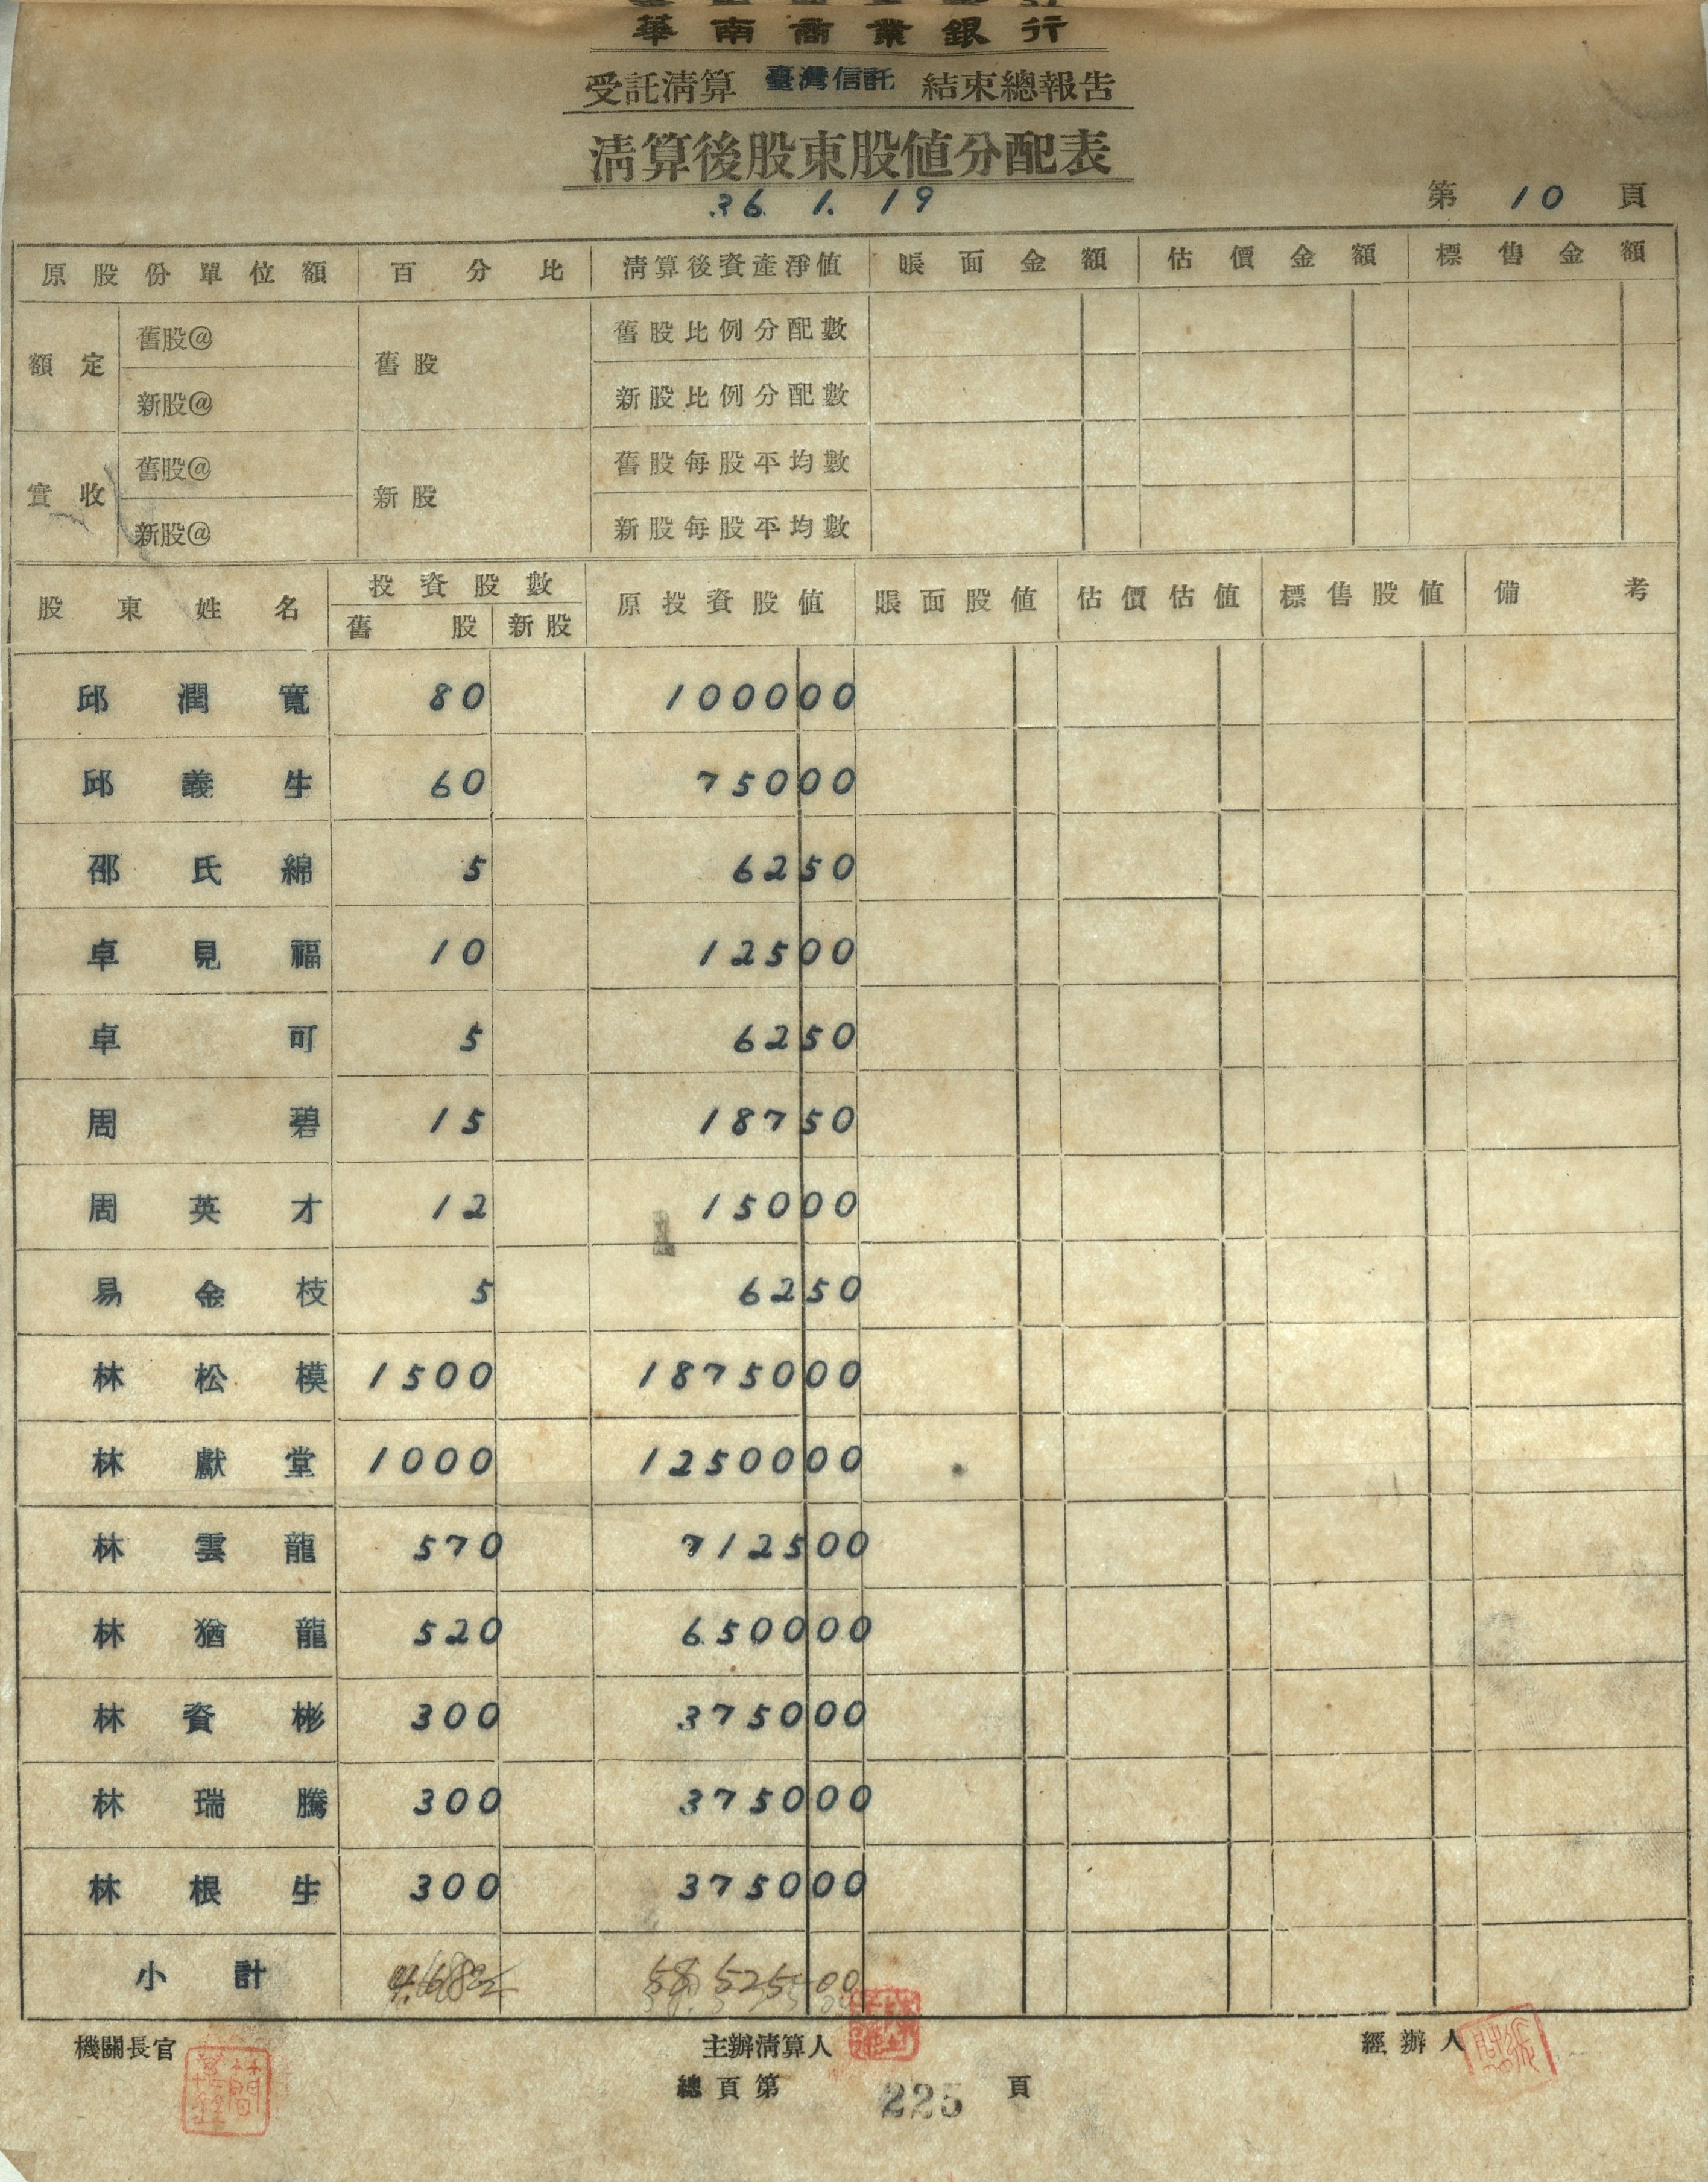 華南商業銀行
受託清算 臺灣信託 結束總報告
清算後股東股值分配表
36. 1. 19
第 10 頁
原股份單位額 百分比 清算後資產淨值 賬面金額 估價金額 標售金額
額定 舊股@ 舊股 舊股比例分配數
新股@ 新股比例分配數
實收 舊股@ 新股 舊股每股平均數
新股@ 新股每股平均數
股東姓名 投資股數 原投資股值 賬面股值 估價估值 標售股值 備考
舊股 新股
邱潤寬 80 100000
邱義生 60 75000
邵氏綿 5 6250
卓見福 10 12500
卓可 5 6250
周碧 15 18750
周英才 12 15000
易金枝 5 6250
林松模 1500 1875000
林獻堂 1000 1250000
林雲龍 570 712500
林猶龍 520 650000
林資彬 300 375000
林瑞騰 300 375000
林根生 300 375000
小計 4,682 58,525 00
機關長官 主辦清算人 經辦人
總頁第 225 頁